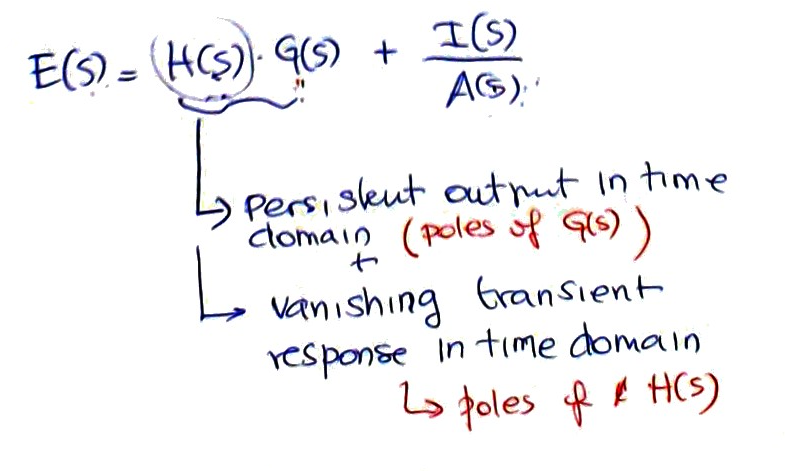 E(S) = H(S) · G(S) + I(S)/A(S)
persistent output in time
domain (poles of G(S))
+
vanishing transient
response in time domain
↳ poles of H(S)